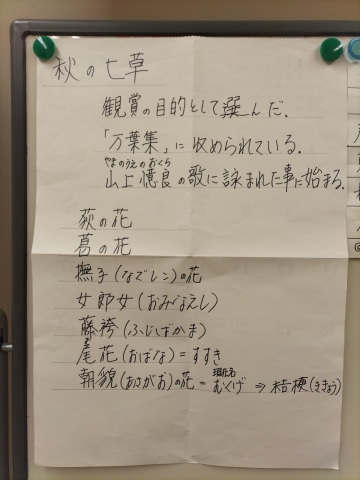 秋の七草
観賞の目的として選んだ.
「万葉集」に収められている.
やまのうえのおくら
山上憶良の歌に詠まれた事に始まる.
萩の花
葛の花
撫子(なでしこ)の花
女郎女(おみなえし)
藤袴(ふじばかま)
尾花(おばな)=すすき
朝貌(あさがお)の花=むくげ⇒桔梗(ききょう)